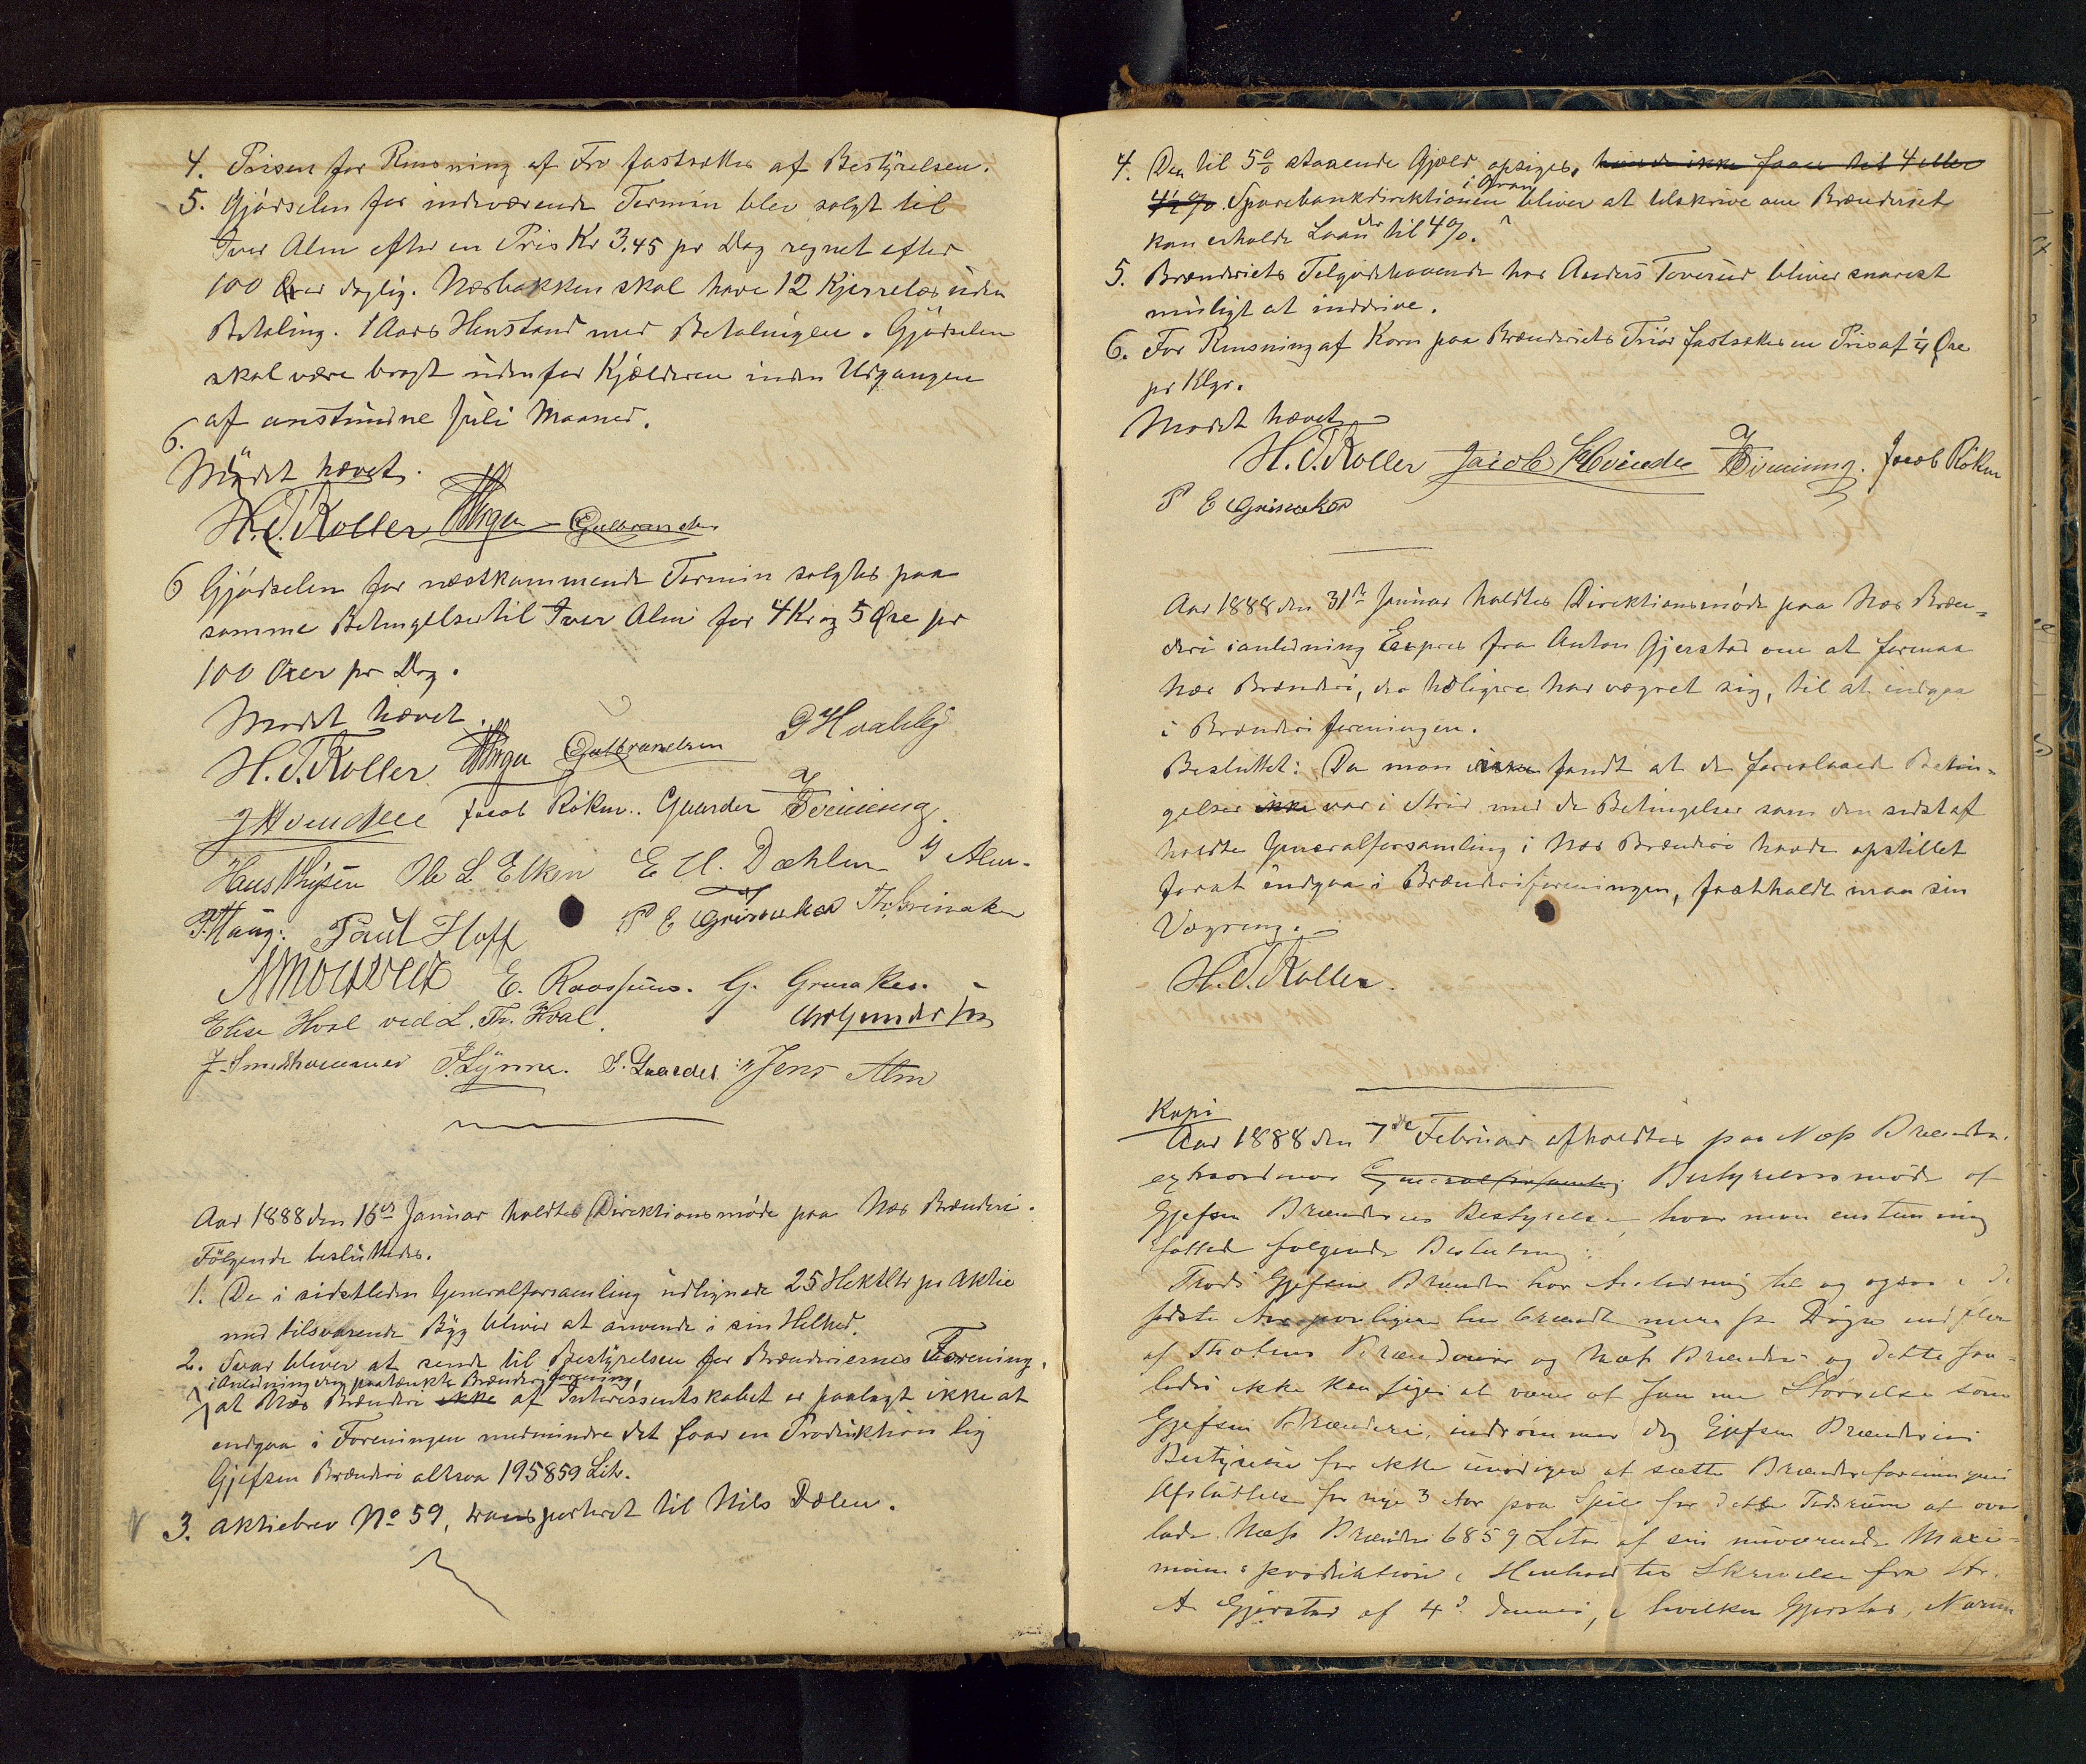 4. Prisen for Rensning af Frø fastsættes af Bestyrelsen.
5. Gjødselen for indeværende Termin blev solgt til
Iver Alm efter en Pris Kr 3.45 pr Dag regnet efter
100 Øxer daglig. Næsbakken skal have 12 Kjerrelæs uden
Betaling. 1 Aars Henstand med Betalingen. Gjødselen
skal være bragt udenfor Kjælderen inden Udgangen
af anstundne Juli Maaned.
6.
Mødet hævet.
H. T. Koller Gulbrandsen
6 Gjødselen for næstkommende Termin solgtes paa
samme Betingelser til Iver Alm for 4 Kr og 5 Øre pr
100 Oxer pr Dag.
Mødet hævet.
H. T. Koller Gulbrandsen P Hvalby
J Hvinden Jacob Røken. Gaarder
Hans Thysen Ole L Elken E A. Dæhlen I Alm.
P. Haug. Paul Hoff P E Grinaker Th. Grinaker
E. Roossum. G. Grinaker.
Elise Hval ved L. Th. Hval.
J. Smedshammer P. Lynne. Gaarder Jens Alm
Aar 1888 den 16de Januar holdtes Direktionsmøde paa Næs Brænderi.
Følgende besluttedes.
1. De i sidstleden Generalforsamling udlignede 25 Hektltr pr Aktie
med tilsvarende Byg bliver at anvende i sin Helhed.
2. Svar bliver at sende til Bestyrelsen for Brænderiernes Forening,
i Anledning den paatænkte Brænderiforening,
at Næs Brænderi ikke af Interessentskabet er paalagt ikke at
indgaa i Foreningen medmindre det faar en Produktion lig
Gjefsen Brænderi altsaa 195859 Litr.
3. Aktiebrev No 59, transporteret til Nils Dælen.
4. Den til 5% staaende Gjæld opsiges, hvis de ikke faaes til 4 eller
4½%. Sparebankdirektionen i Gran bliver at tilskrive om Brænderiet
kan erholde Laan der til 4%.
5. Brænderiets Tilgodehavende hos Anders Toverud bliver snarest
muligt at inddrive.
6. For Rensning af Korn paa Brænderiets Triør fastsættes en Pris af ¼ Øre
pr Klgr.
Mødet hævet
H. T. Koller Jacob Hvinden Jacob Røken
P E Grinaker
Aar 1888 den 31te Januar holdtes Direktionsmøde paa Næs Bræn-
deri i anledning Expres fra Anton Gjerstad om at formaa
Næs Brænderi, der tidligere har vægret sig, til at indgaa
i Brænderiforeningen.
Besluttet: Da man fandt at de foreslaaede Betin-
gelser ikke var i Strid med de Betingelser som den sidst af
holdte Generalforsamling i Næs Brænderi havde opstillet
forat indgaa i Brænderiforeningen, fastholdt man sin
Vægring.
H. T. Koller.
Kopi
Aar 1888 den 7de Februar afholdtes paa Næss Brænderi
extraordinær Generalforsamling Bestyrelsesmøde af
Gjefsen Brænderies Bestyrelse, hvor man enstemmig
fattede følgende Beslutning:
Trods Gjefsen Brænderi har Anledning til og ogsaa i de
sidste Aar har brændt mere pr Døgn end flere
af Thotens Brænderier og Næss Brænderi og dette saa-
ledes ikke kan siges at være af samme Størrelse som
Gjefsen Brænderi, indrømmer dog Gjefsen Brænderies
Bestyrelse for ikke unødigen at sætte Brænderiforeningens
Afsluttelse for nye 3 Aar paa Spil for dette Tidsrum at over
lade Næss Brænderi 6859 Liter af sin nuværende Maxi-
mumsproduktion i Henhold til Skrivelse fra Hr.
A Gjerstad af 4de dennes, i hvilken Gjerstad,